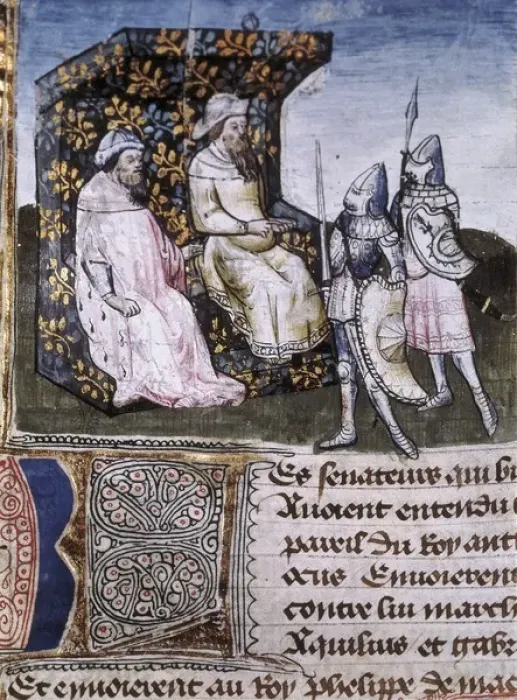 LEs senateurs qui
Auoient entendu
pareil Du Roy anti
ocus Enuoierent
contre lui march
Aquilius et gabr
Et enuoierent au Roy Phelippe de mac